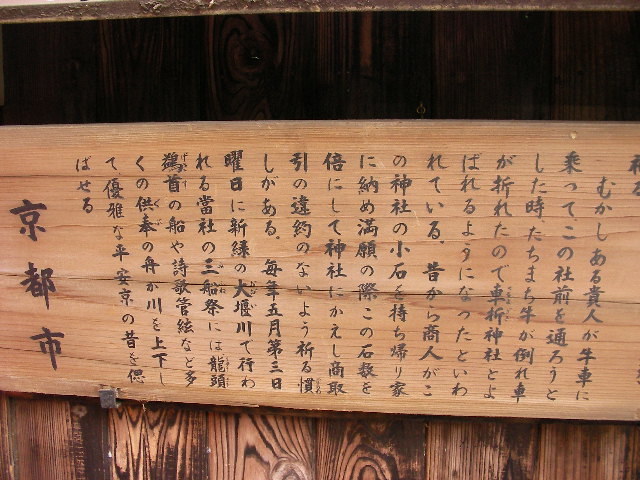 むかしある貴人が牛車に
乗って、この社前を通ろうと
した時たちまち牛が倒れ車
が折れたので車折神社とよ
ばれるようになったといわ
れている。昔から商人がこ
の神社の小石を持ち帰り家
に納め満願の際この石数を
倍にして神社にかえし商取
引の違約のないよう祈る慣
しがある。毎年五月第三日
曜日に新緑の大堰川で行わ
れる當社の三船祭には龍頭
鷁首の船や詩歌管絃など多
くの供奉の舟が川を上下し
て優雅な平安京の昔を偲
ばせる
京都市